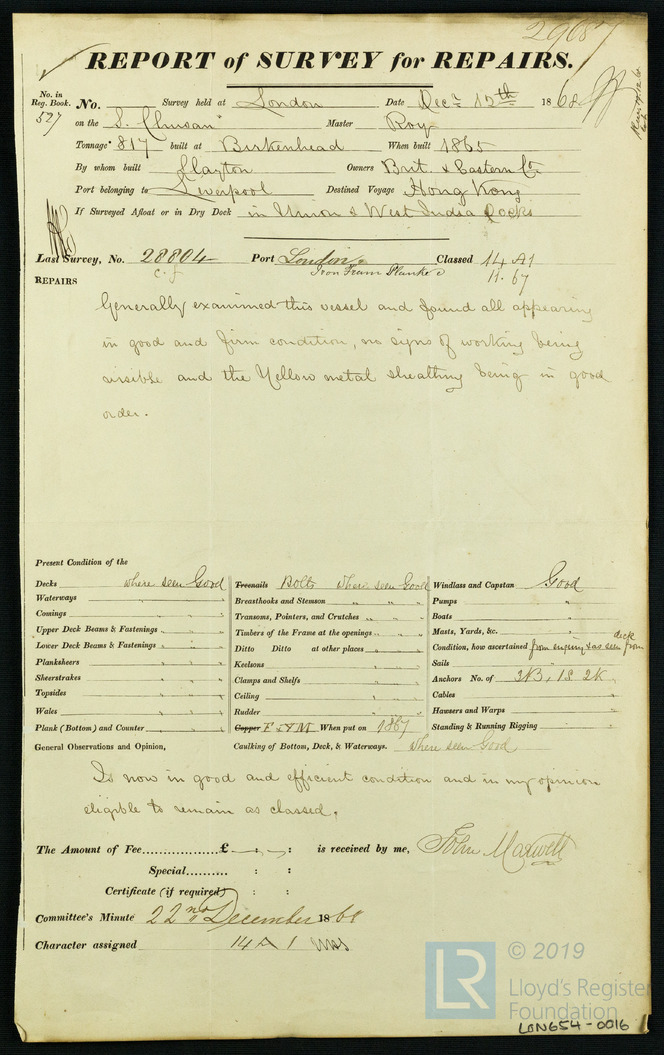 29687
REPORT of SURVEY for REPAIRS.
No. in Reg. Book. No. Survey held at London Date Decr 12th 1868
527 on the S. "Chusan" Master Roy
Tonnage 817 built at Birkenhead When built 1865
By whom built Clayton Owners Brit. & Eastern Co.
Port belonging to Liverpool Destined Voyage Hong Kong
If Surveyed Afloat or in Dry Dock in Union & West India Docks
Last Survey, No. 28804 Port London Classed 14 A1
c.f Iron Fram Planked 11.67
REPAIRS
Generally examined this vessel and found all appearing
in good and firm condition, no signs of working being
visible and the Yellow metal sheathing being in good
order.
Present Condition of the
Decks where seen Good
Waterways " " "
Comings " " "
Upper Deck Beams & Fastenings " " "
Lower Deck Beams & Fastenings " " "
Planksheers " " "
Sheerstrakes " " "
Topsides " " "
Wales " " "
Plank (Bottom) and Counter " " "
Treenails Bolts where seen Good
Breasthooks and Stemson " " "
Transoms, Pointers, and Crutches " " "
Timbers of the Frame at the openings " " "
Ditto Ditto at other places " " "
Keelsons " " "
Clamps and Shelfs " " "
Ceiling " " "
Rudder " " "
Copper F & YM When put on 1867
Caulking of Bottom, Deck, & Waterways. where seen Good
Windlass and Capstan Good
Pumps "
Boats "
Masts, Yards, &c. "
Condition, how ascertained from enquiry & as seen from deck
Sails "
Anchors No. of 3B, 1S 2K
Cables "
Hawsers and Warps "
Standing & Running Rigging "
General Observations and Opinion,
Is now in good and efficient condition and in my opinion
eligible to remain as classed.
The Amount of Fee.................£ — : — : is received by me, John Maxwell
Special.......... : :
Certificate (if required) : :
Committee's Minute 22nd December 1868
Character assigned 14 A 1
LR © 2019
Lloyd's Register
Foundation
LON654-0016